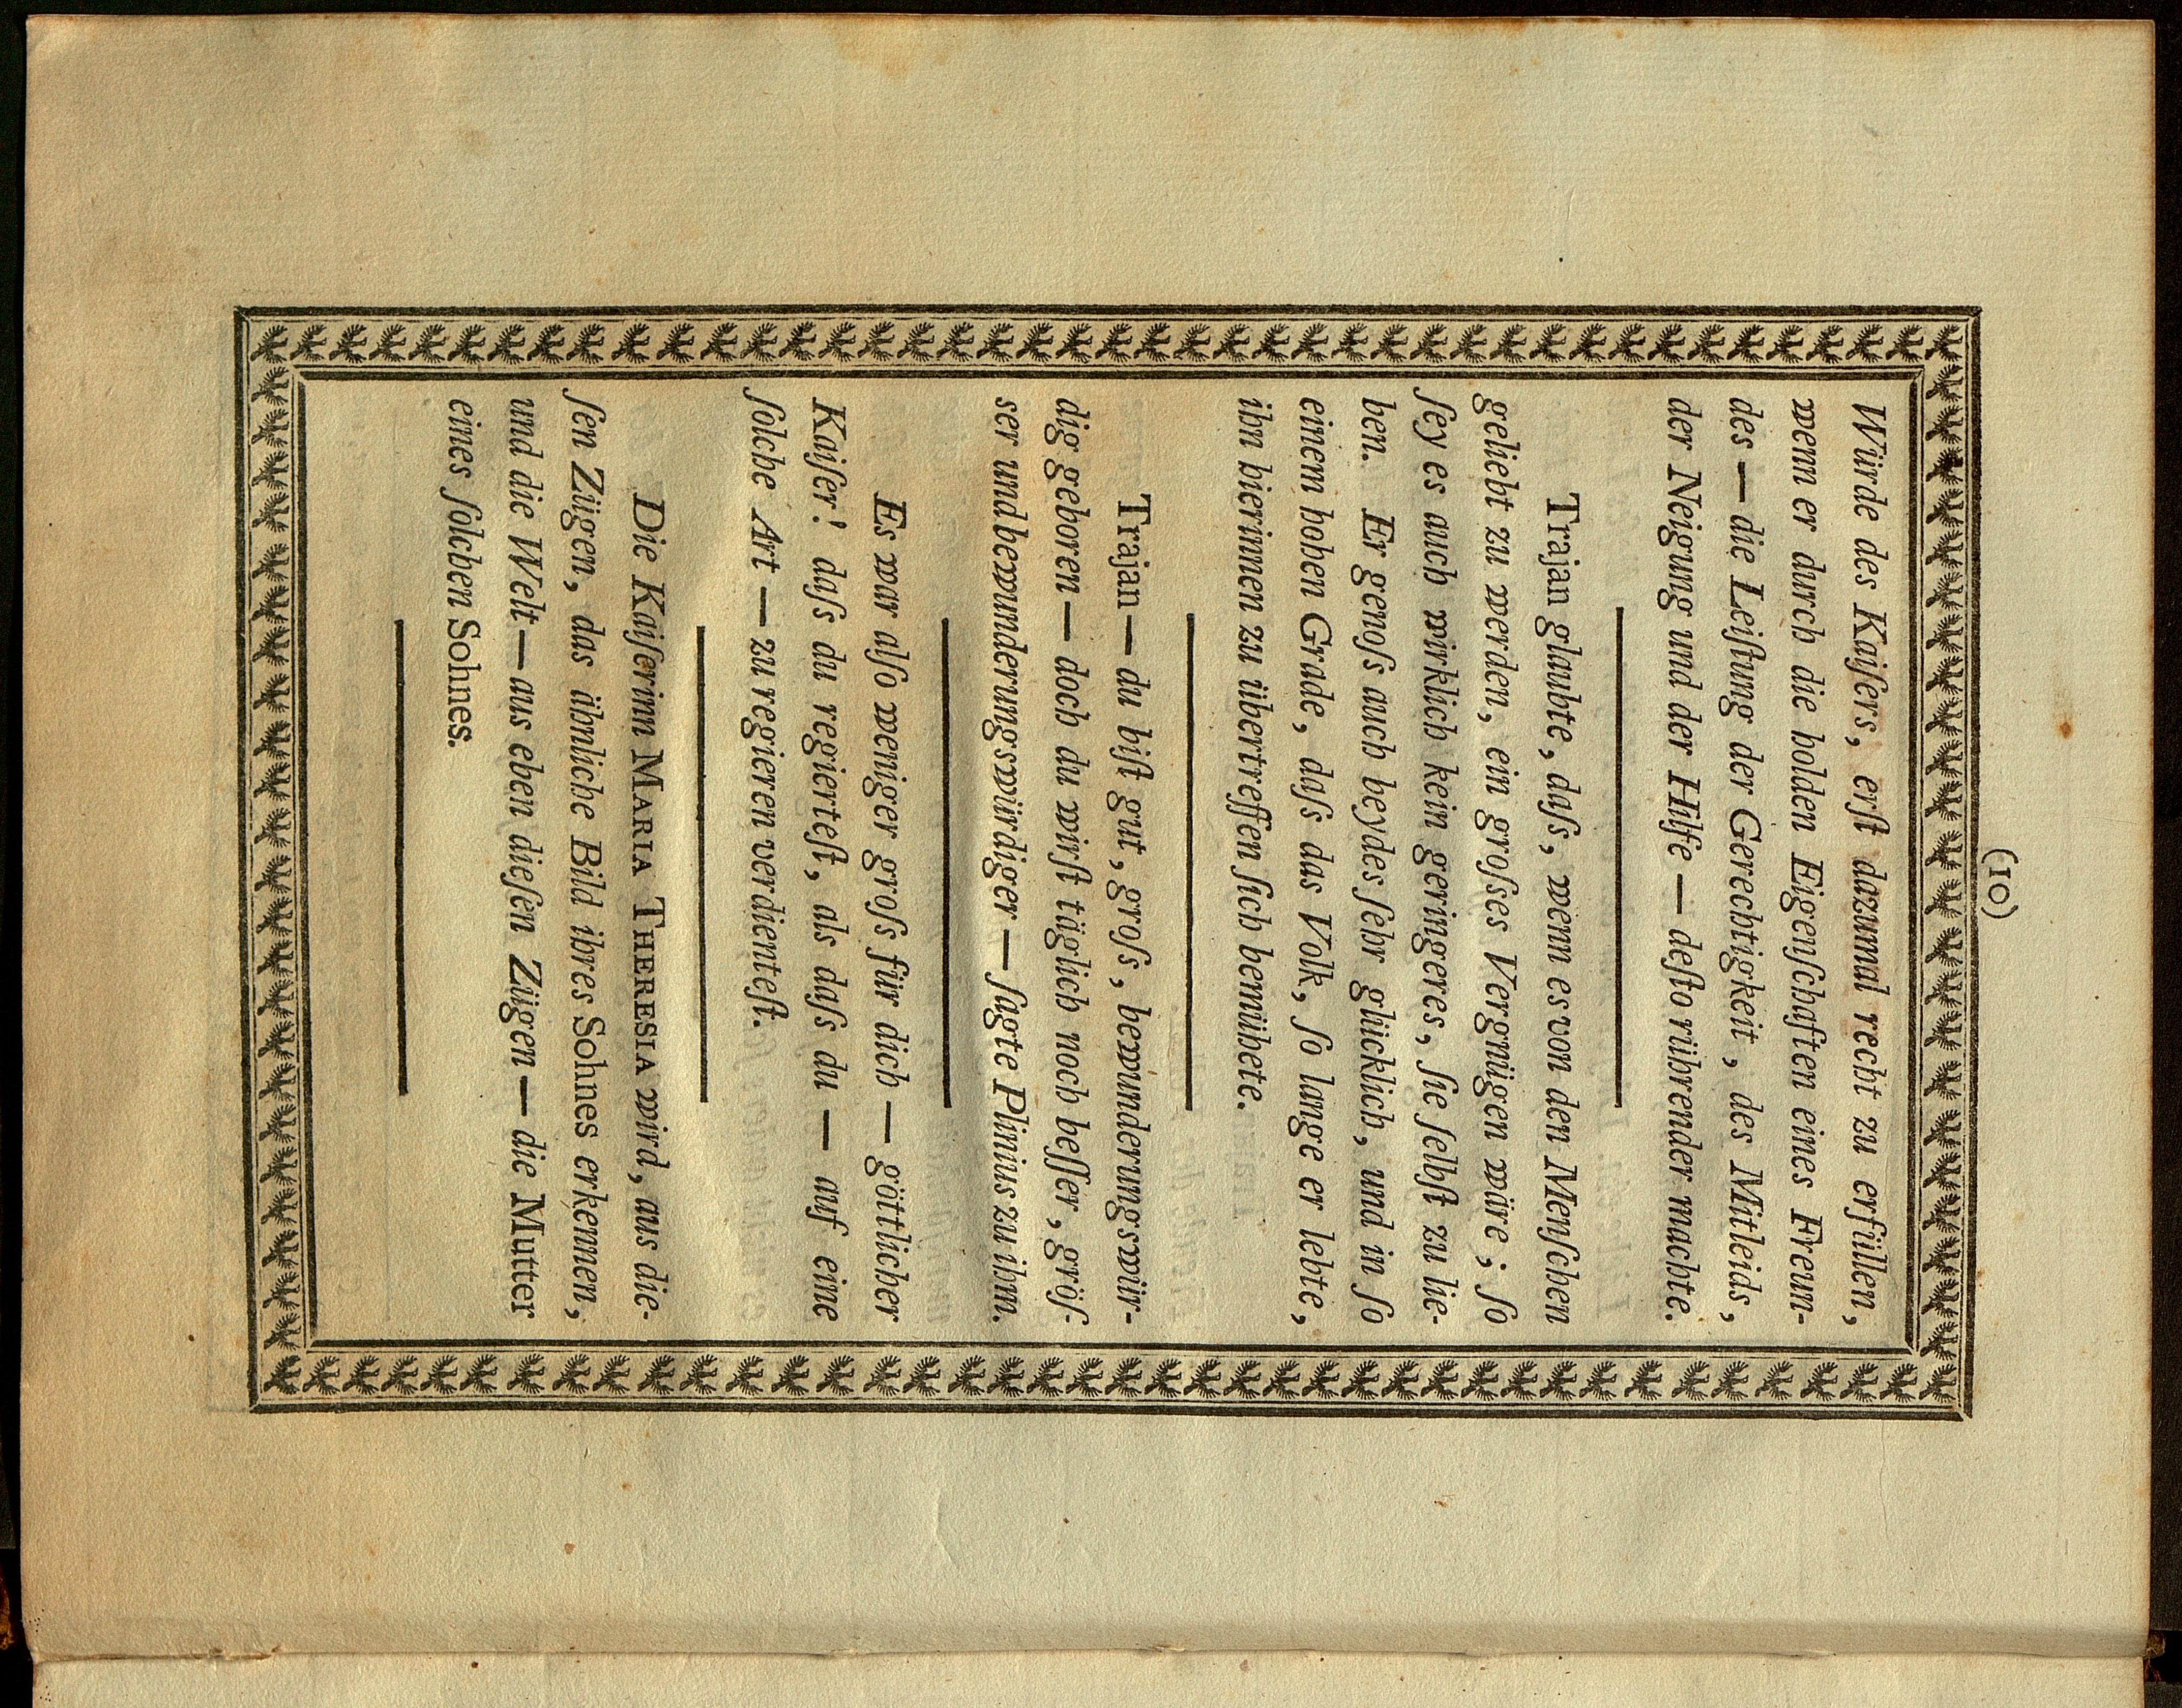 (10)
Würde des Kaiſers, erſt dazumal recht zu erfüllen,
wenn er durch die holden Eigenſchaften eines Freun-
des — die Leiſtung der Gerechtigkeit, des Mitleids,
der Neigung und der Hilfe — deſto rührender machte.
Trajan glaubte, daſs, wenn es von den Menſchen
geliebt zu werden, ein groſses Vergnügen wäre; ſo
ſey es auch wirklich kein geringeres, ſie ſelbſt zu lie-
ben. Er genoſs auch beydes ſehr glücklich, und in ſo
einem hohen Grade, daſs das Volk, ſo lange er lebte,
ihn hierinnen zu übertreffen ſich bemühete.
Trajan — du biſt gut, groſs, bewunderungswür-
dig geboren — doch du wirſt täglich noch beſſer, gröſ-
ser und bewunderungswürdiger — ſagte Plinius zu ihm.
Es war alſo weniger groſs für dich — göttlicher
Kaiſer! daſs du regierteſt, als daſs du — auf eine
ſolche Art — zu regieren verdienteſt.
Die Kaiſerinn MARIA THERESIA wird, aus die-
ſen Zügen, das ähnliche Bild ihres Sohnes erkennen,
und die Welt — aus eben dieſen Zügen — die Mutter
eines ſolchen Sohnes.